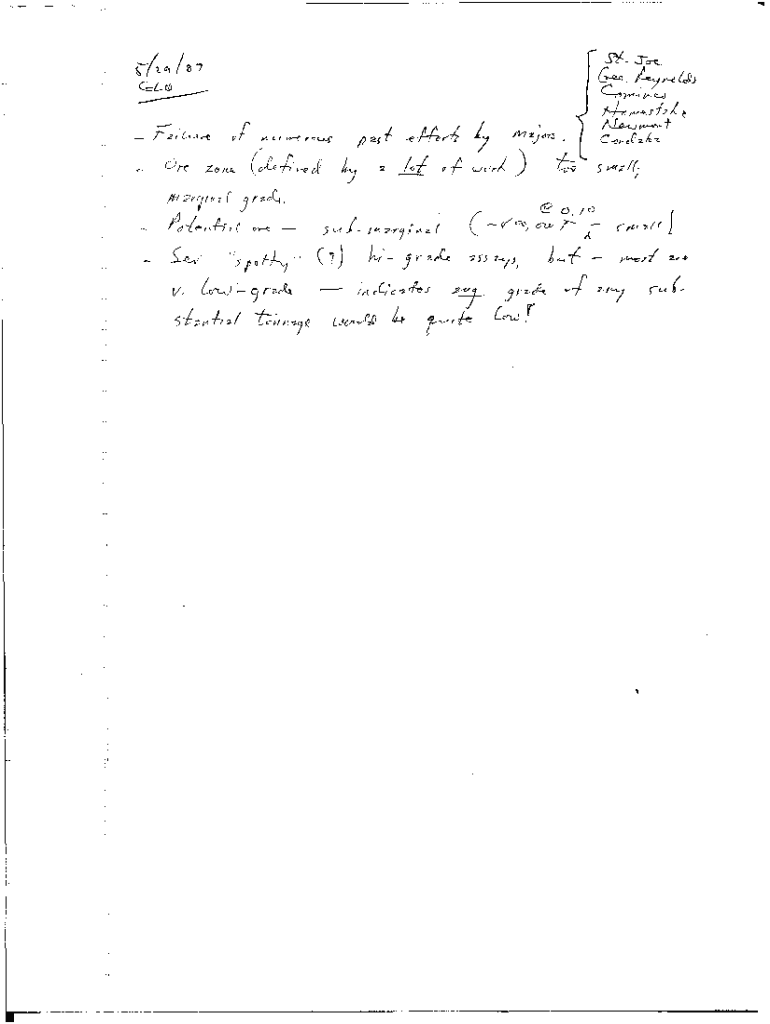 5/29/87
St. Joe
Geo. Reynolds
Cominco
Homestake
Newmont
Cordex
- Failure of numerous past efforts by majors.
- Ore zone (defined by a lot of work) too small;
marginal grade.
- Potential ore — sub-marginal @ 0.10 small
- Sev "spotty" (?) hi-grade assays, but — most are
v. low-grade — indicates avg grade of any sub-
stantial tonnage would be quite low!